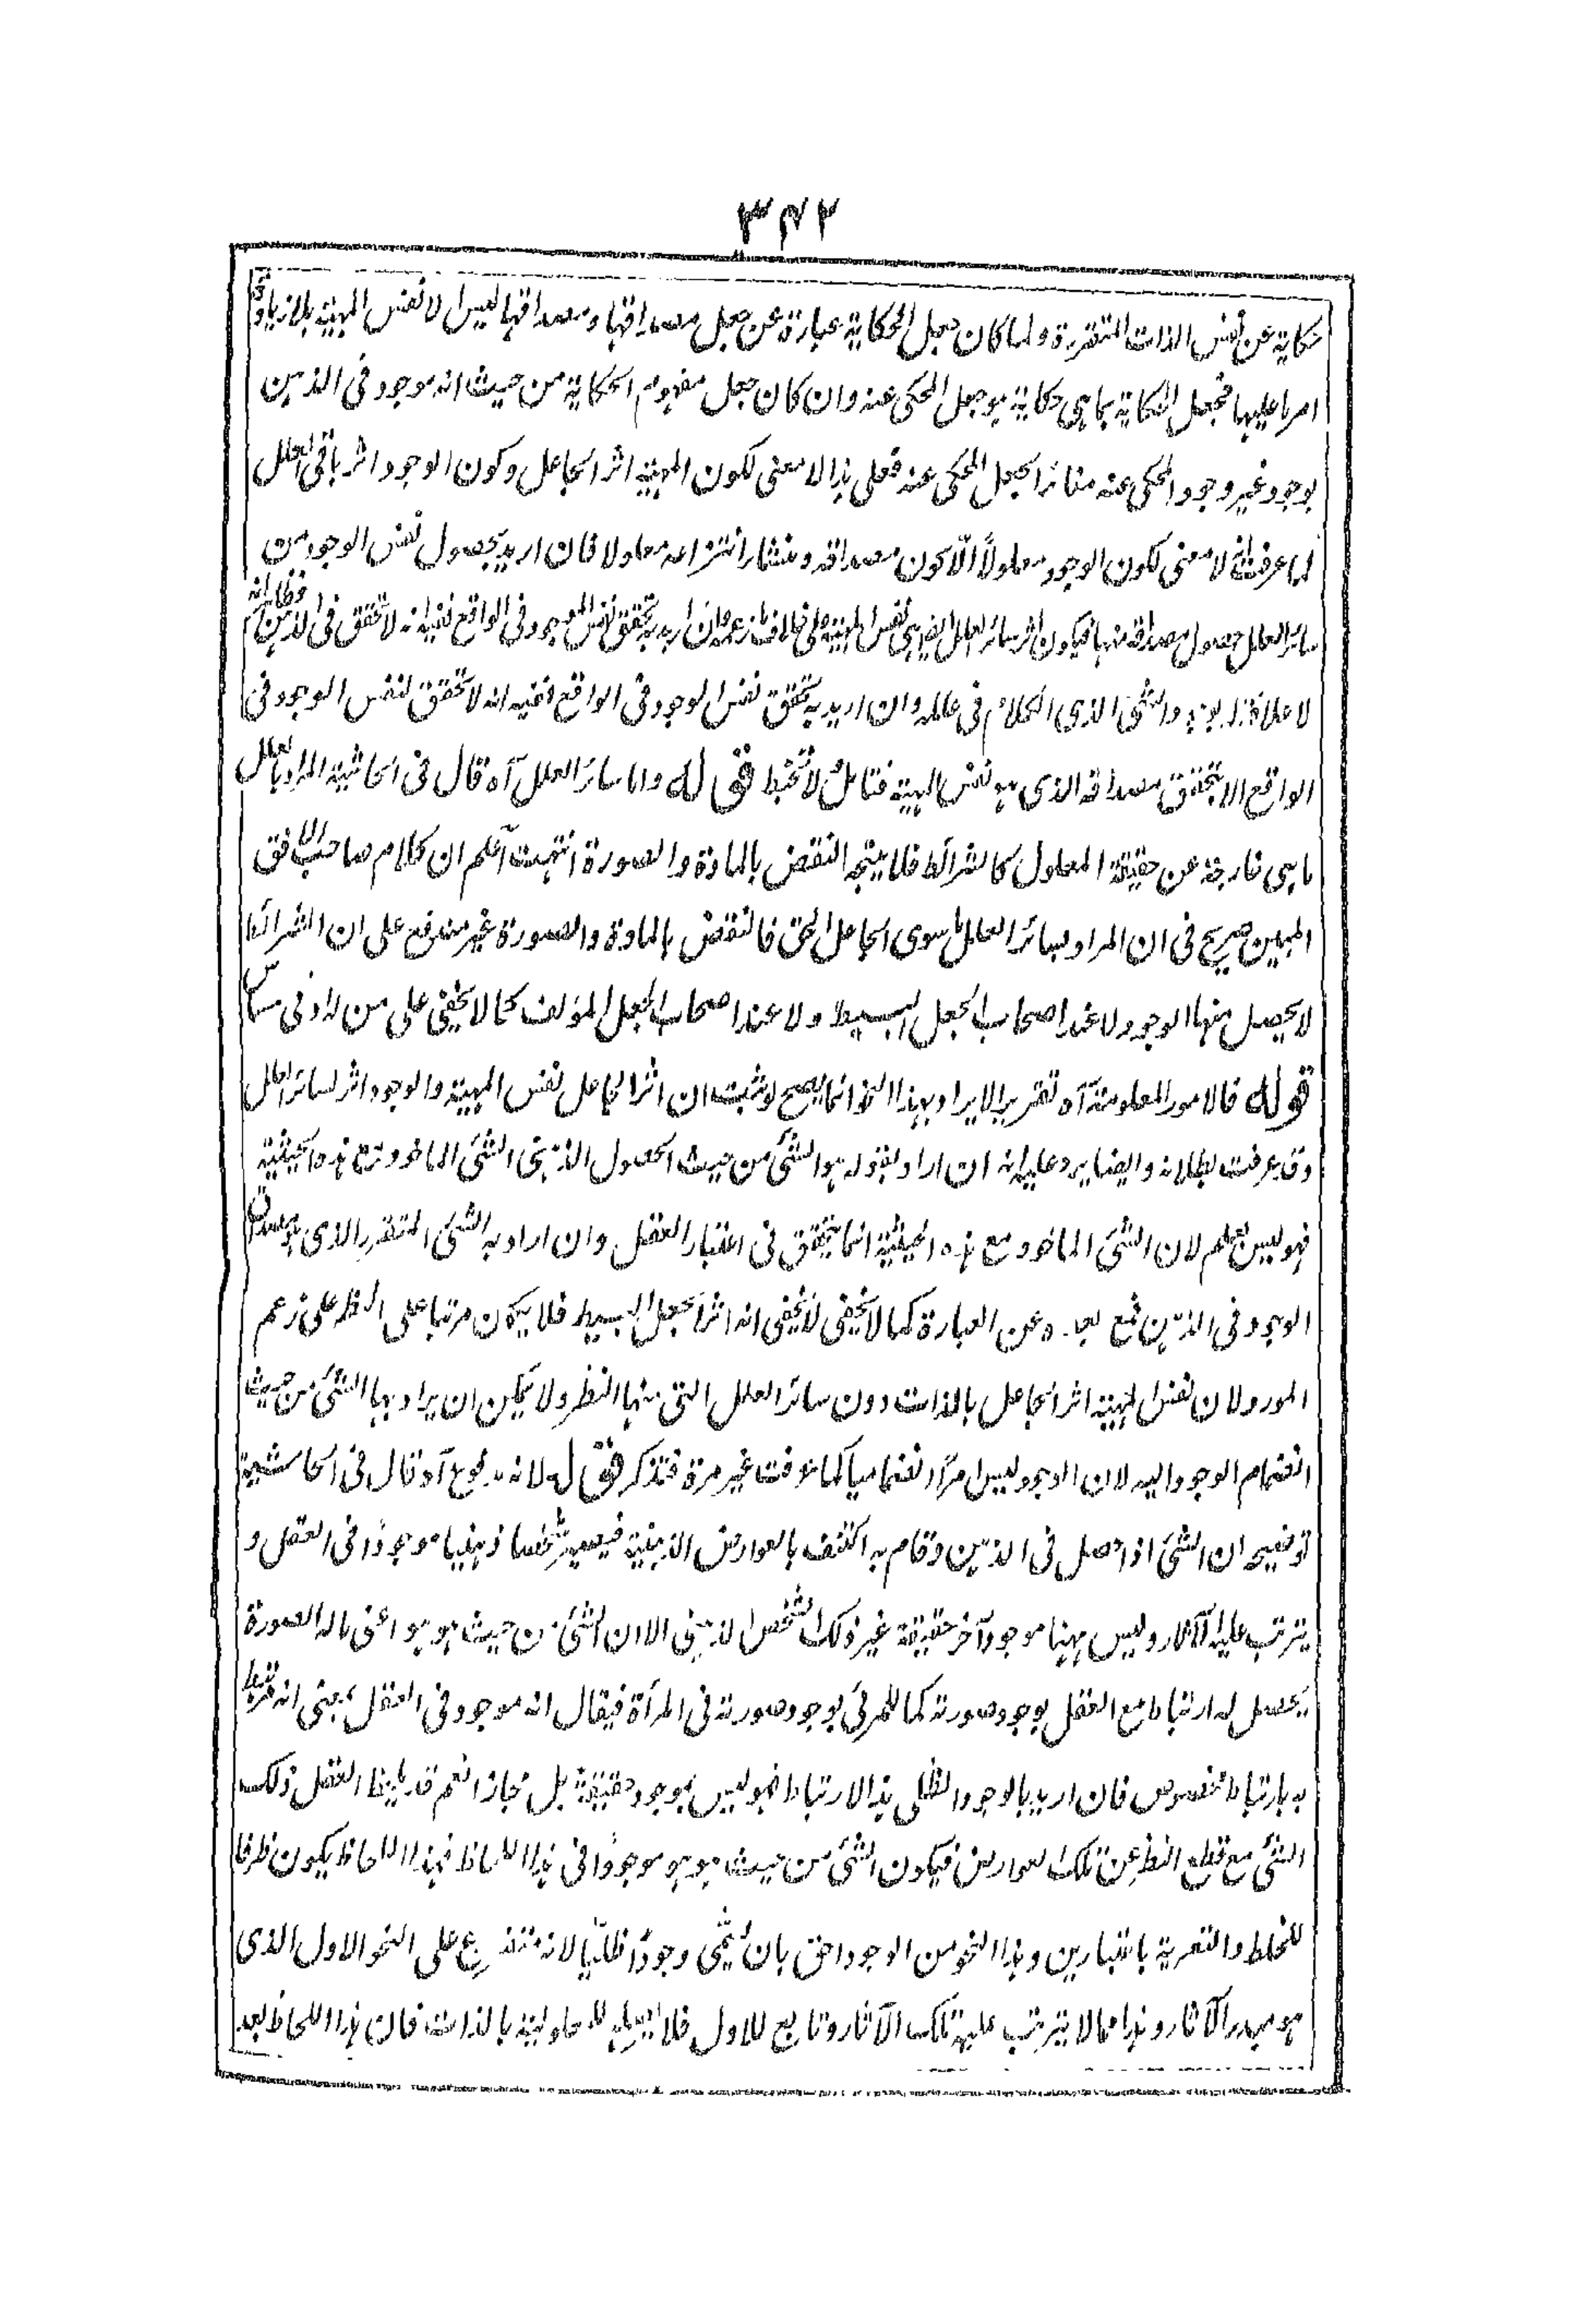 ٣٤٢
حكاية عن نفس الذات المتقررة ولما كان جعل الحكاية عبارة عن جعل مصداقها ومصداقها ليس الا نفس المهية بلا زيادة
امر ما عليها فجعل الحكاية بما هى حكاية هو جعل المحكى عنه وان كان جعل مفهوم الحكاية من حيث انه موجود فى الذهن
بوجود غير وجود المحكى عنه مغائرا لجعل المحكى عنه فعلى هذا لا معنى لكون المهية اثر الجاعل وكون الوجود اثر باقى العلل
لما عرفت انه لا معنى لكون الوجود معلولاً الّا كون مصداقه ومنشأ انتزاعه معلولا فان اريد بحصول نفس الوجود من
سائر العلل حصول مصداقه منها فيكون اثر سائر العلل ايضا هى نفس المهية على خلاف ما زعمه وان اريد به تحقق نفس الوجود فى الواقع ففيه انه لا تحقق فى الذهن فظاهر انه
لا علاقة بوجود الشئ الذى الكلام فى علله وان اريد به تحقق نفس الوجود فى الواقع ففيه انه لا تحقق لنفس الوجود فى
الواقع الا بتحقق مصداقه الذى هو نفس المهية فتامل ولا تخبط قوله واما سائر العلل آه قال فى الحاشية المراد بالعلل
ما هى خارجة عن حقيقة المعلول كالشرائط فلا يتجه النقض بالمادة والصورة انتهت اعلم ان كلام صاحب الافق
المبين صريح فى ان المراد بسائر العلل ما سوى الجاعل الحق فالنقض بالمادة والصورة غير مندفع على ان الشرائط
لا يحصل منها الوجود لا عند اصحاب الجعل البسيط ولا عند اصحاب الجعل المؤلف كما لا يخفى على من له ادنى مساس
قوله فالامور المعلومة آه تقرير الايراد بهذا النحو انما يصح لو ثبت ان اثر الجاعل نفس المهية والوجود اثر لسائر العلل
وقد عرفت بطلانه وايضا يرد عليه انه ان اراد بقوله هو الشئ من حيث الحصول الذهنى الشئ الماخوذ مع هذه الحيثية
فهو ليس بعلم لان الشئ الماخوذ مع هذه الحيثية انما يتحقق فى اعتبار العقل وان اراد به الشئ المتقرر الذى هو مصداق
الوجود فى الذهن فمع بعده عن العبارة كما لا يخفى لا يخفى انه اثر الجعل البسيط فلا يكون مرتبا على النظر على زعم
المورد لان نفس المهية اثر الجاعل بالذات دون سائر العلل التى منها النظر ولا يمكن ان يراد بها الشئ من حيث
انضمام الوجود اليه لان الوجود ليس امرًا انضمامياً كما عرفت غير مرة فتذكر قوله لانه مجموع آه قال فى الحاشية
توضيحه ان الشئ اذا حصل فى الذهن وقام به اكتنف بالعوارض الذهنية فيصير شخصا ذهنيا موجودًا فى العقل و
يترتب عليه الآثار وليس ههنا موجود آخر حقيقة غير ذلك الشخص الذهنى الا ان الشئ من حيث هو هو اعنى ما له الصورة
يحصل له ارتباط مع العقل بوجود صورته كما للمرئى بوجود صورته فى المرآة فيقال انه موجود فى العقل بمعنى انه مرتبط
به بارتباط مخصوص فان اريد بالوجود الظلى هذا الارتباط فهو ليس بموجود حقيقة بل مجازا نعم قد يلاحظ العقل ذلك
الشئ مع قطع النظر عن تلك العوارض فيكون الشئ من حيث هو هو موجودًا فى هذا اللحاظ فهذا اللحاظ يكون ظرفا
للخلط والتعرية باعتبارين وهذا النحو من الوجود احق بان يسمى وجودًا ظليًا لانه متفرع على النحو الاول الذى
هو مبدء الآثار وهذا مما لا يترتب عليه تلك الآثار وتابع للاول فلا للمعلولية بالذات فان هذا اللحاظ بعد